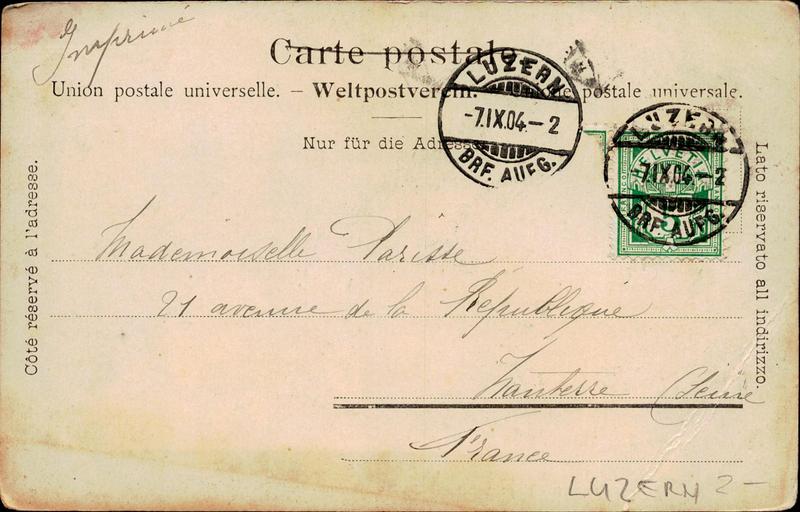 Imprimé
Carte postale.
Union postale universelle. – Weltpostverein. postale universale.
Nur für die Adresse
LUZERN
-7.IX.04.-2
BRF. AUFG.
LUZERN
7.IX.04-2
BRF. AUFG.
HELVETIA
FRANCO
5
Côté réservé à l'adresse.
Lato riservato all indirizzo.
Mademoiselle Parisse
21 avenue de la République
Nanterre (Seine
France
LUZERN 2-